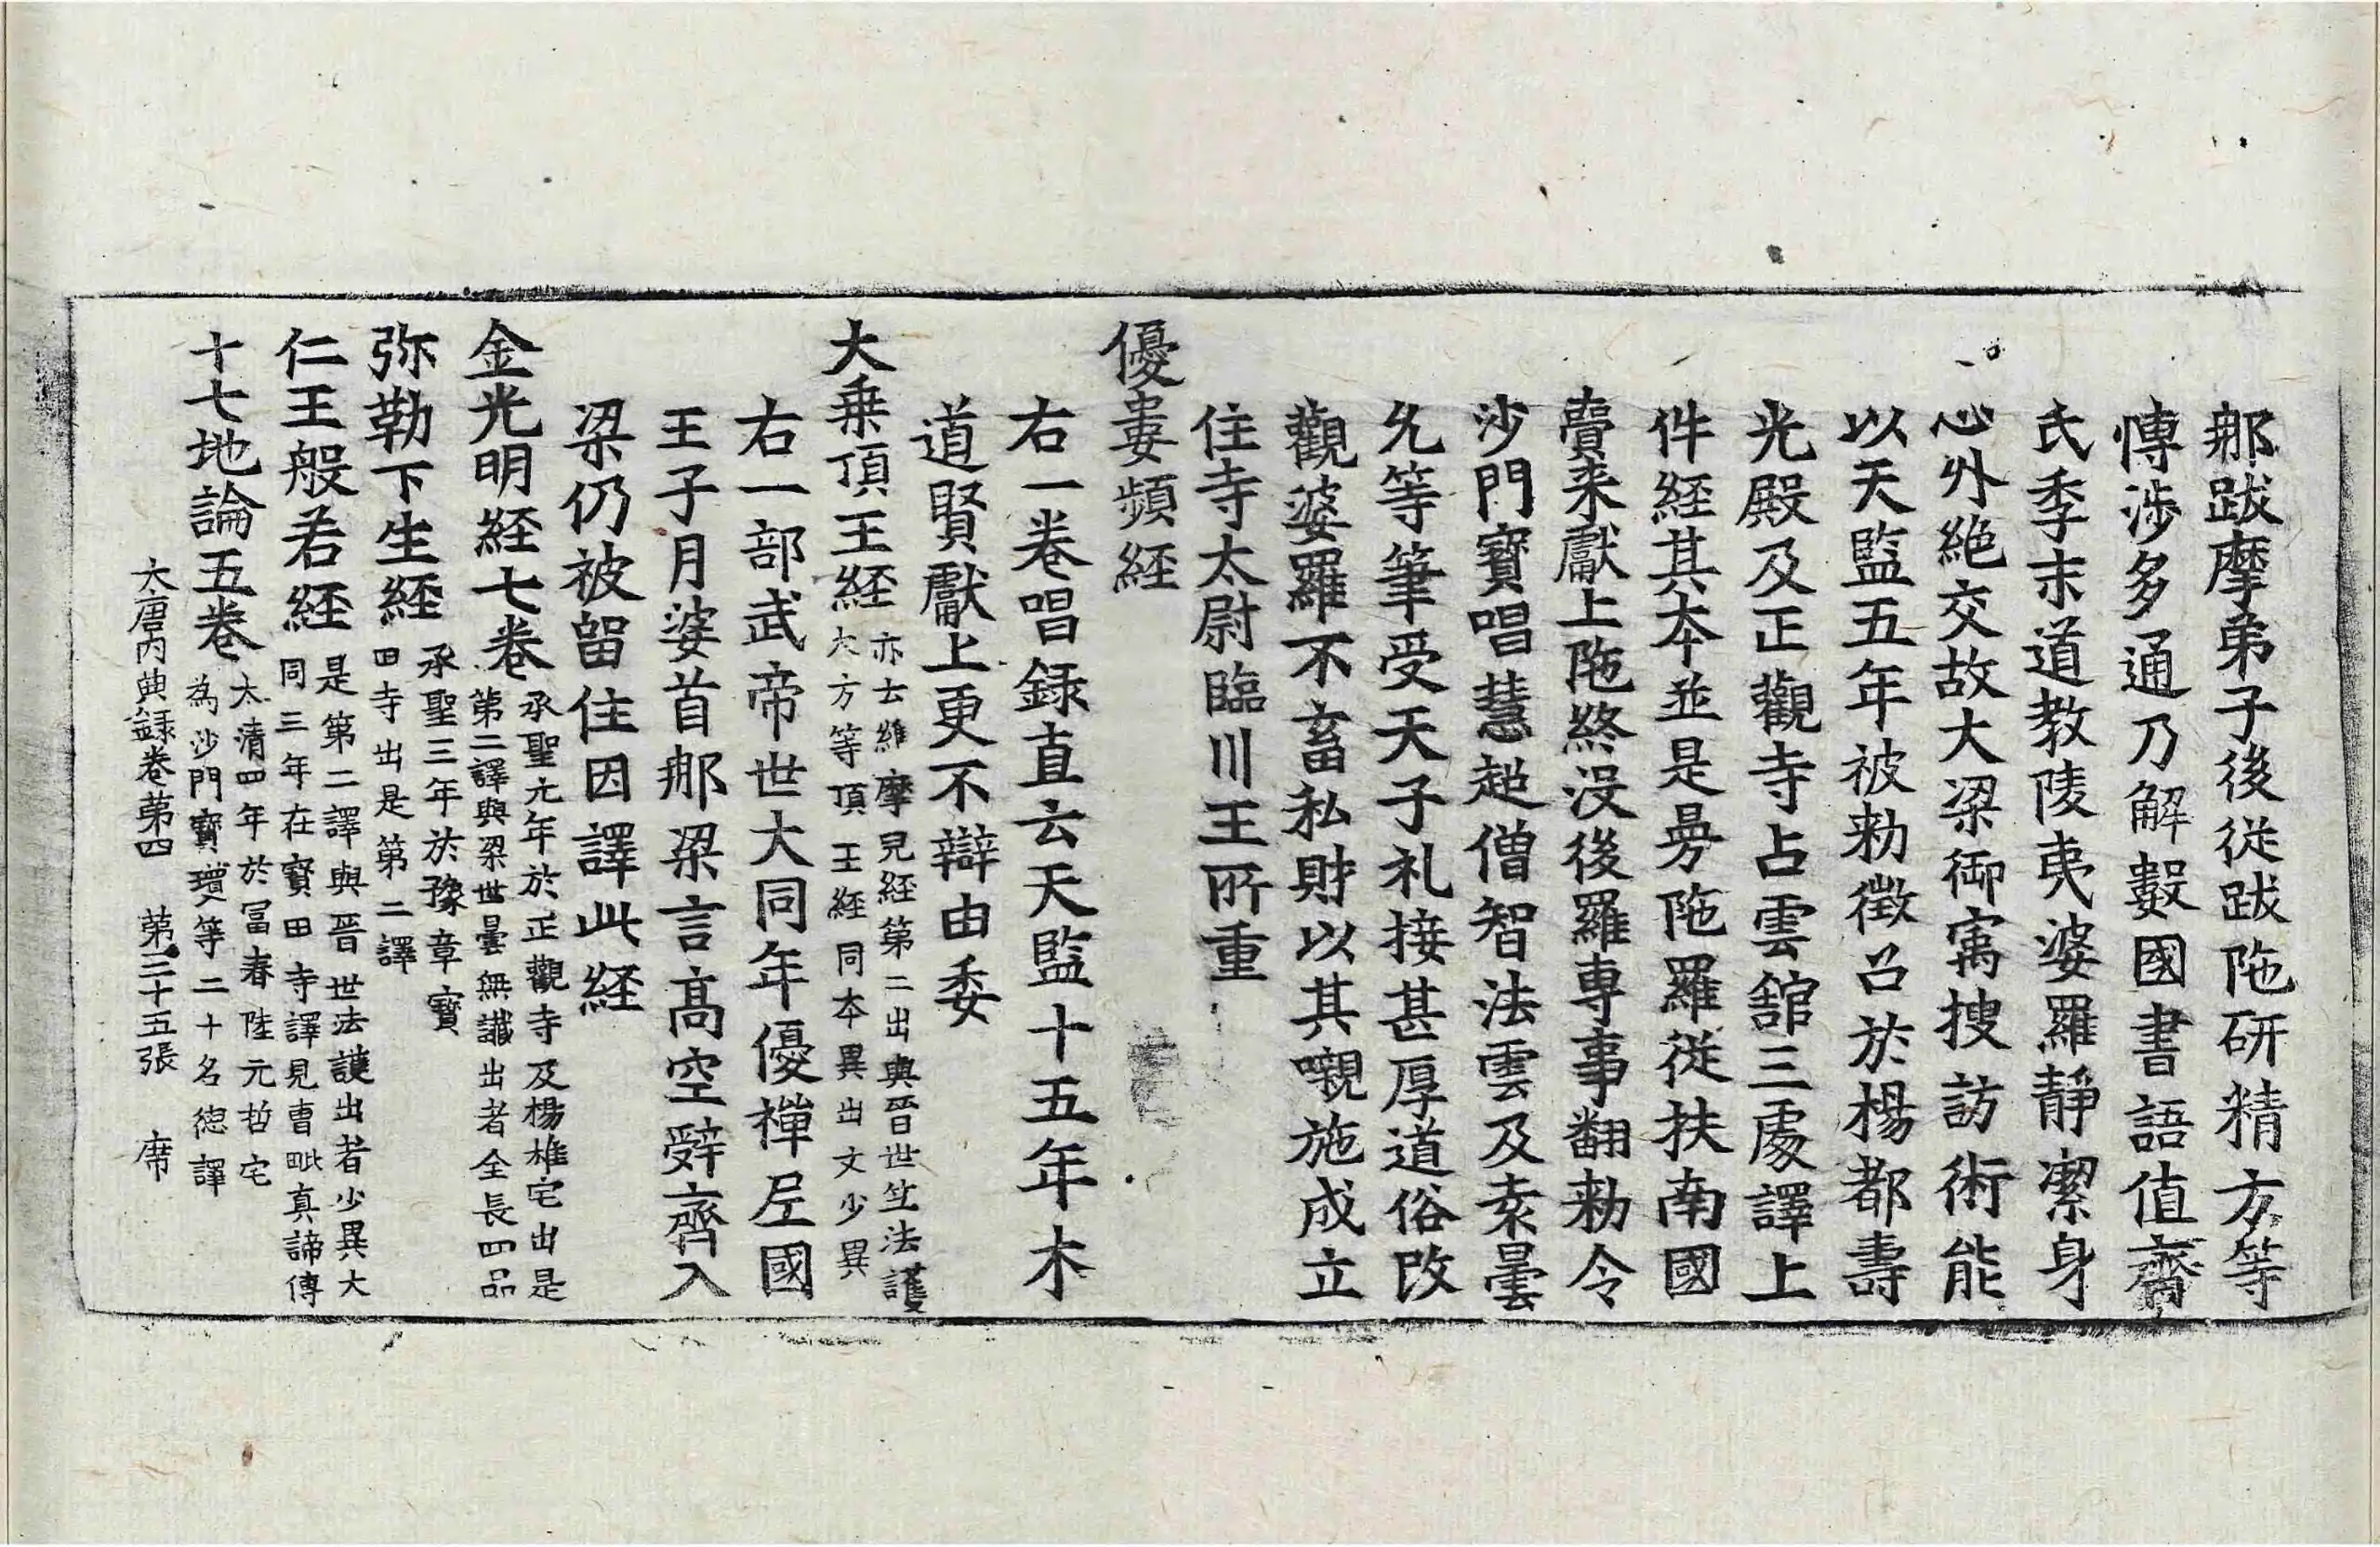 那跋摩弟子後從跋陁研精方等
慱涉多通乃解數國書語值齊
氏季末道教陵夷婆羅靜潔身
心外絶交故大梁御㝢搜訪術能
以天監五年被勑徵召於楊都壽
光殿及正觀寺占雲舘三處譯上
件経其夲並是曼陁羅從扶南國
賷来獻上陁終没後羅專事翻勑令
沙門寶唱慧超僧智法雲及袁曇
允等筆受天子礼接甚厚道俗改
觀婆羅不畜私財以其嚫施成立
住寺太尉臨川王所重
優婁頻経
右一卷唱録直云天監十五年木
道賢獻上更不辯由委
大乗頂王経 亦云維摩兒経第二出與晉世竺法護
大方等頂王経同夲異出文少異
右一部武帝世大同年優禪尼國
王子月婆首那梁言高空辤齊入
梁仍被留住因譯此経
金光明経七卷 承聖元年於正觀寺及楊椎宅出是
第二譯與梁世曇無讖出者全長四品
弥勒下生経 承聖三年於豫章寳
田寺出是第二譯
仁王般若経 是第二譯與晋世法護出者少異大
同三年在寳田寺譯見曺毗真諦傳
十七地論五卷 太清四年於冨春陸元哲宅
為沙門寳瓊等二十名德譯
大唐内典録卷第四 第三十五張 席